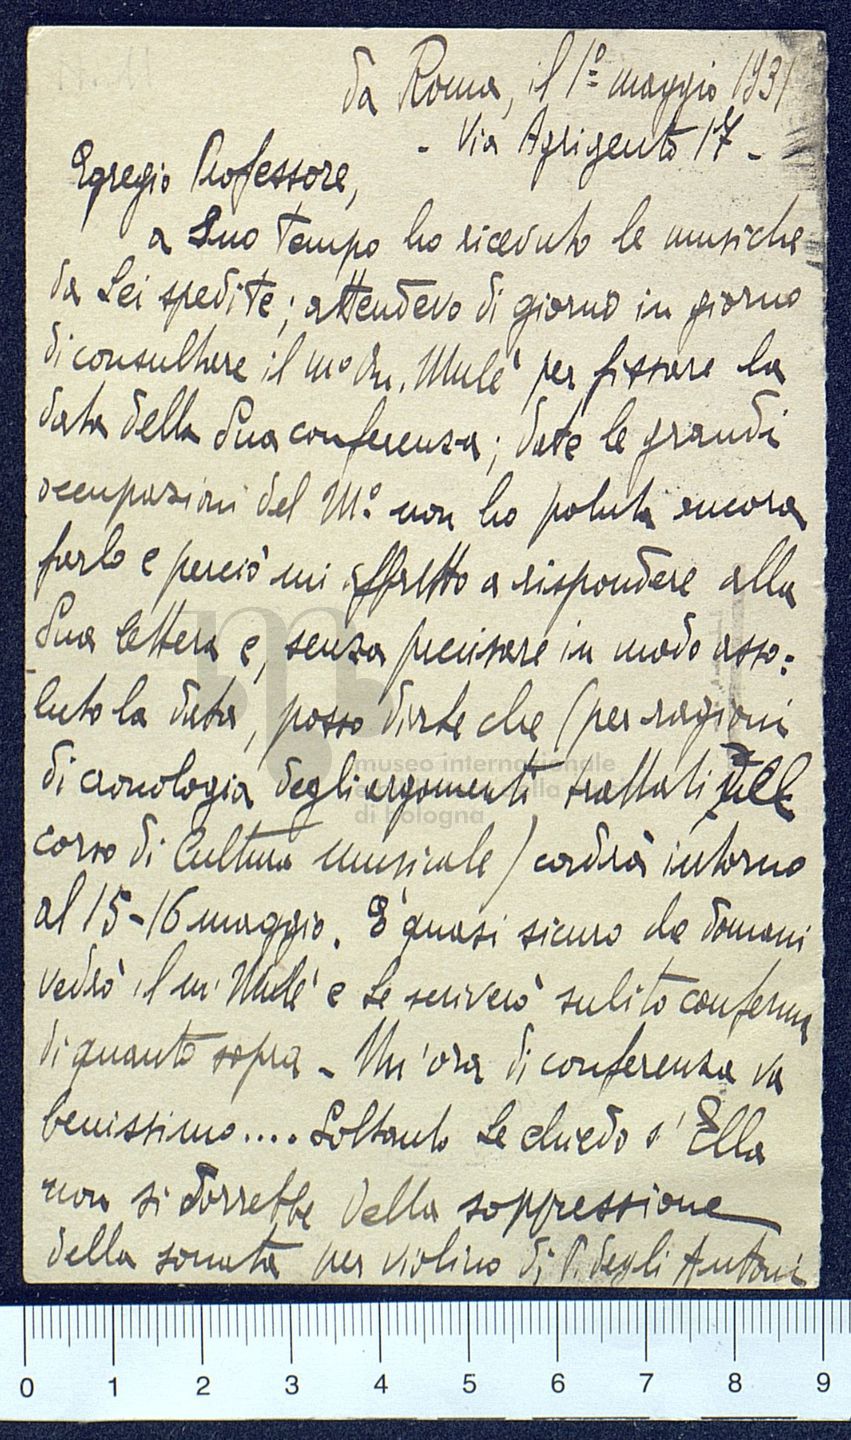 da Roma, il 1º maggio 1931
- Via Agrigento 17 -
Egregio Professore,
a Suo tempo ho ricevuto le musiche
da Lei spedite; attendevo di giorno in giorno
di consultare il Mº Mulè per fissare la
data della Sua conferenza; date le grandi
occupazioni del Mº. non ho potuto ancora
farlo e perciò mi affretto a rispondere alla
Sua lettera e, senza precisare in modo asso:
luto la data, posso dirLe che (per ragioni
di cronologia degli argomenti trattati nel
corso di Cultura musicale) cadrà intorno
al 15-16 maggio. È quasi sicuro che domani
vedrò il Mº Mulè e Le scriverò subito conferma
di quanto sopra - Un'ora di conferenza va
benissimo.... Soltanto Le chiedo s'Ella
non si dorrebbe della soppressione
della sonata per violino di P. degli Antoni
museo internazionale
e biblioteca della musica
di bologna
0 1 2 3 4 5 6 7 8 9